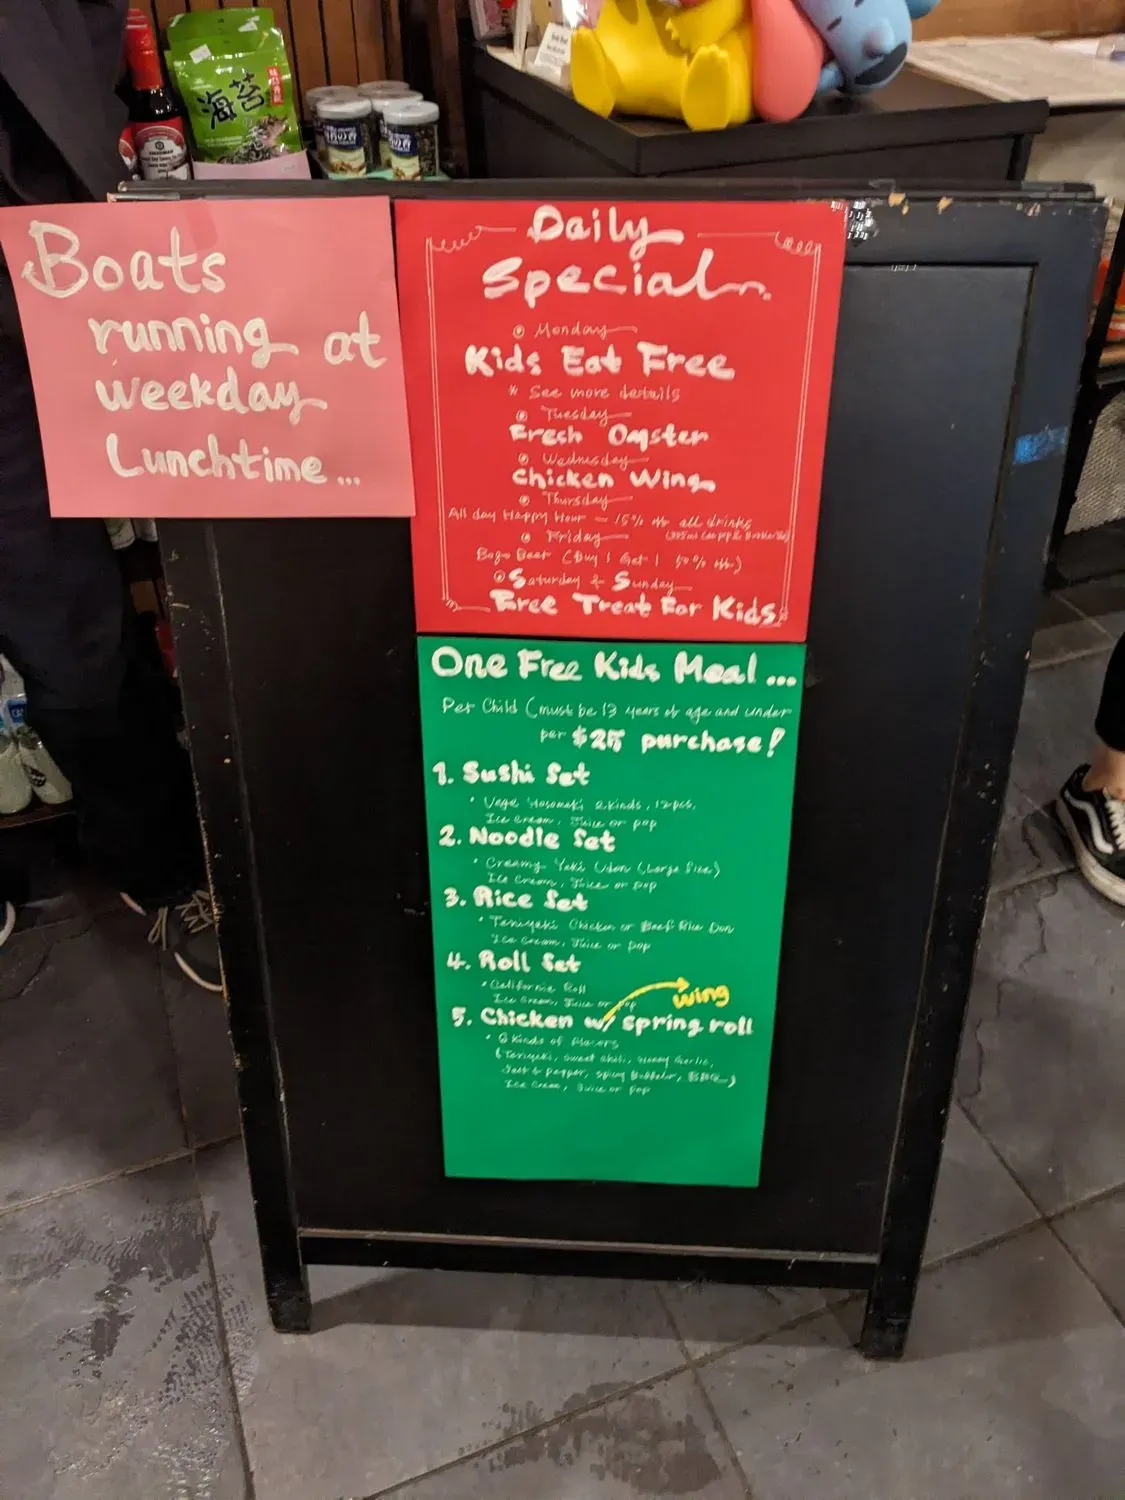 海苔
Boats
running at
weekday
Lunchtime...
Daily
Special
Monday
Kids Eat Free
* See more details
Tuesday
Fresh Oyster
Wednesday
Chicken Wing
Thursday
All day Happy Hour - 15% off all drinks
Friday
Bogo Beer (Buy 1 Get 1 50% off)
Saturday & Sunday
Free Treat For Kids
One Free Kids Meal...
Per Child (must be 13 years of age and under
per $25 purchase!
1. Sushi Set
• Vege Hosomaki 2 kinds, 12 pcs,
Ice Cream, Juice or pop
2. Noodle Set
• Creamy Yaki Udon (Large Size)
Ice Cream, Juice or pop
3. Rice Set
• Teriyaki Chicken or Beef Rice Don
Ice Cream, Juice or pop
4. Roll Set
• California Roll
Ice Cream, Juice or pop
wing
5. Chicken w/ spring roll
• 6 kinds of flavors
(Teriyaki, sweet chili, Honey Garlic,
Salt & pepper, spicy Buffalo, BBQ)
Ice Cream, Juice or pop